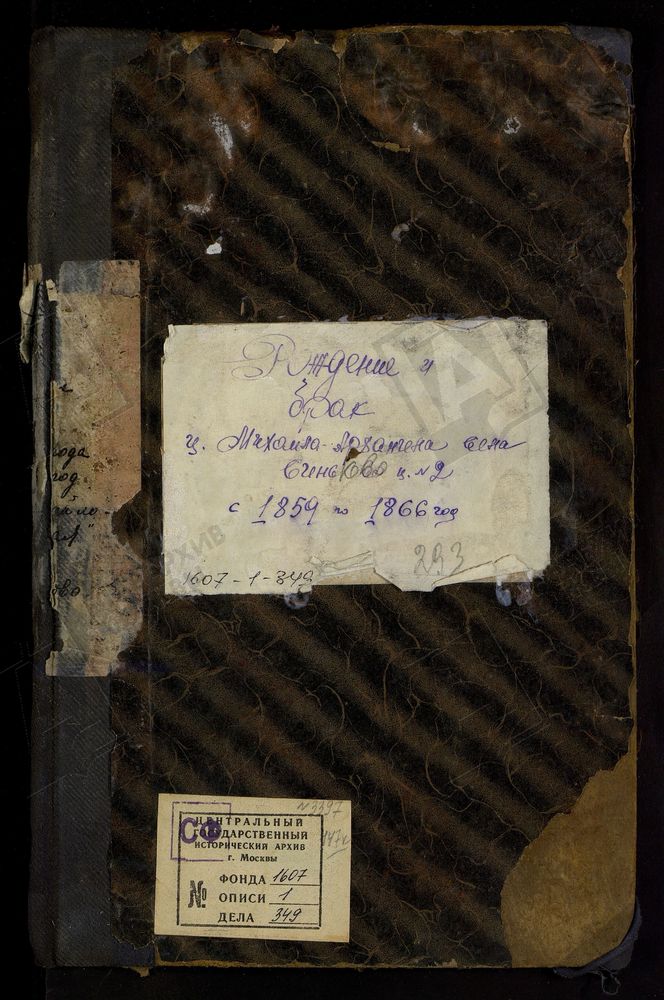 Рждение и
брак
ц. Михаила-Архангела села
Синьково ц. №2
с 1859 по 1866 год
293
1607-1-349
ода
год
во
№3397
СФ
ЦЕНТРАЛЬНЫЙ
ГОСУДАРСТВЕННЫЙ
ИСТОРИЧЕСКИЙ АРХИВ
г. Москвы
№
ФОНДА 1607
ОПИСИ 1
ДЕЛА 349